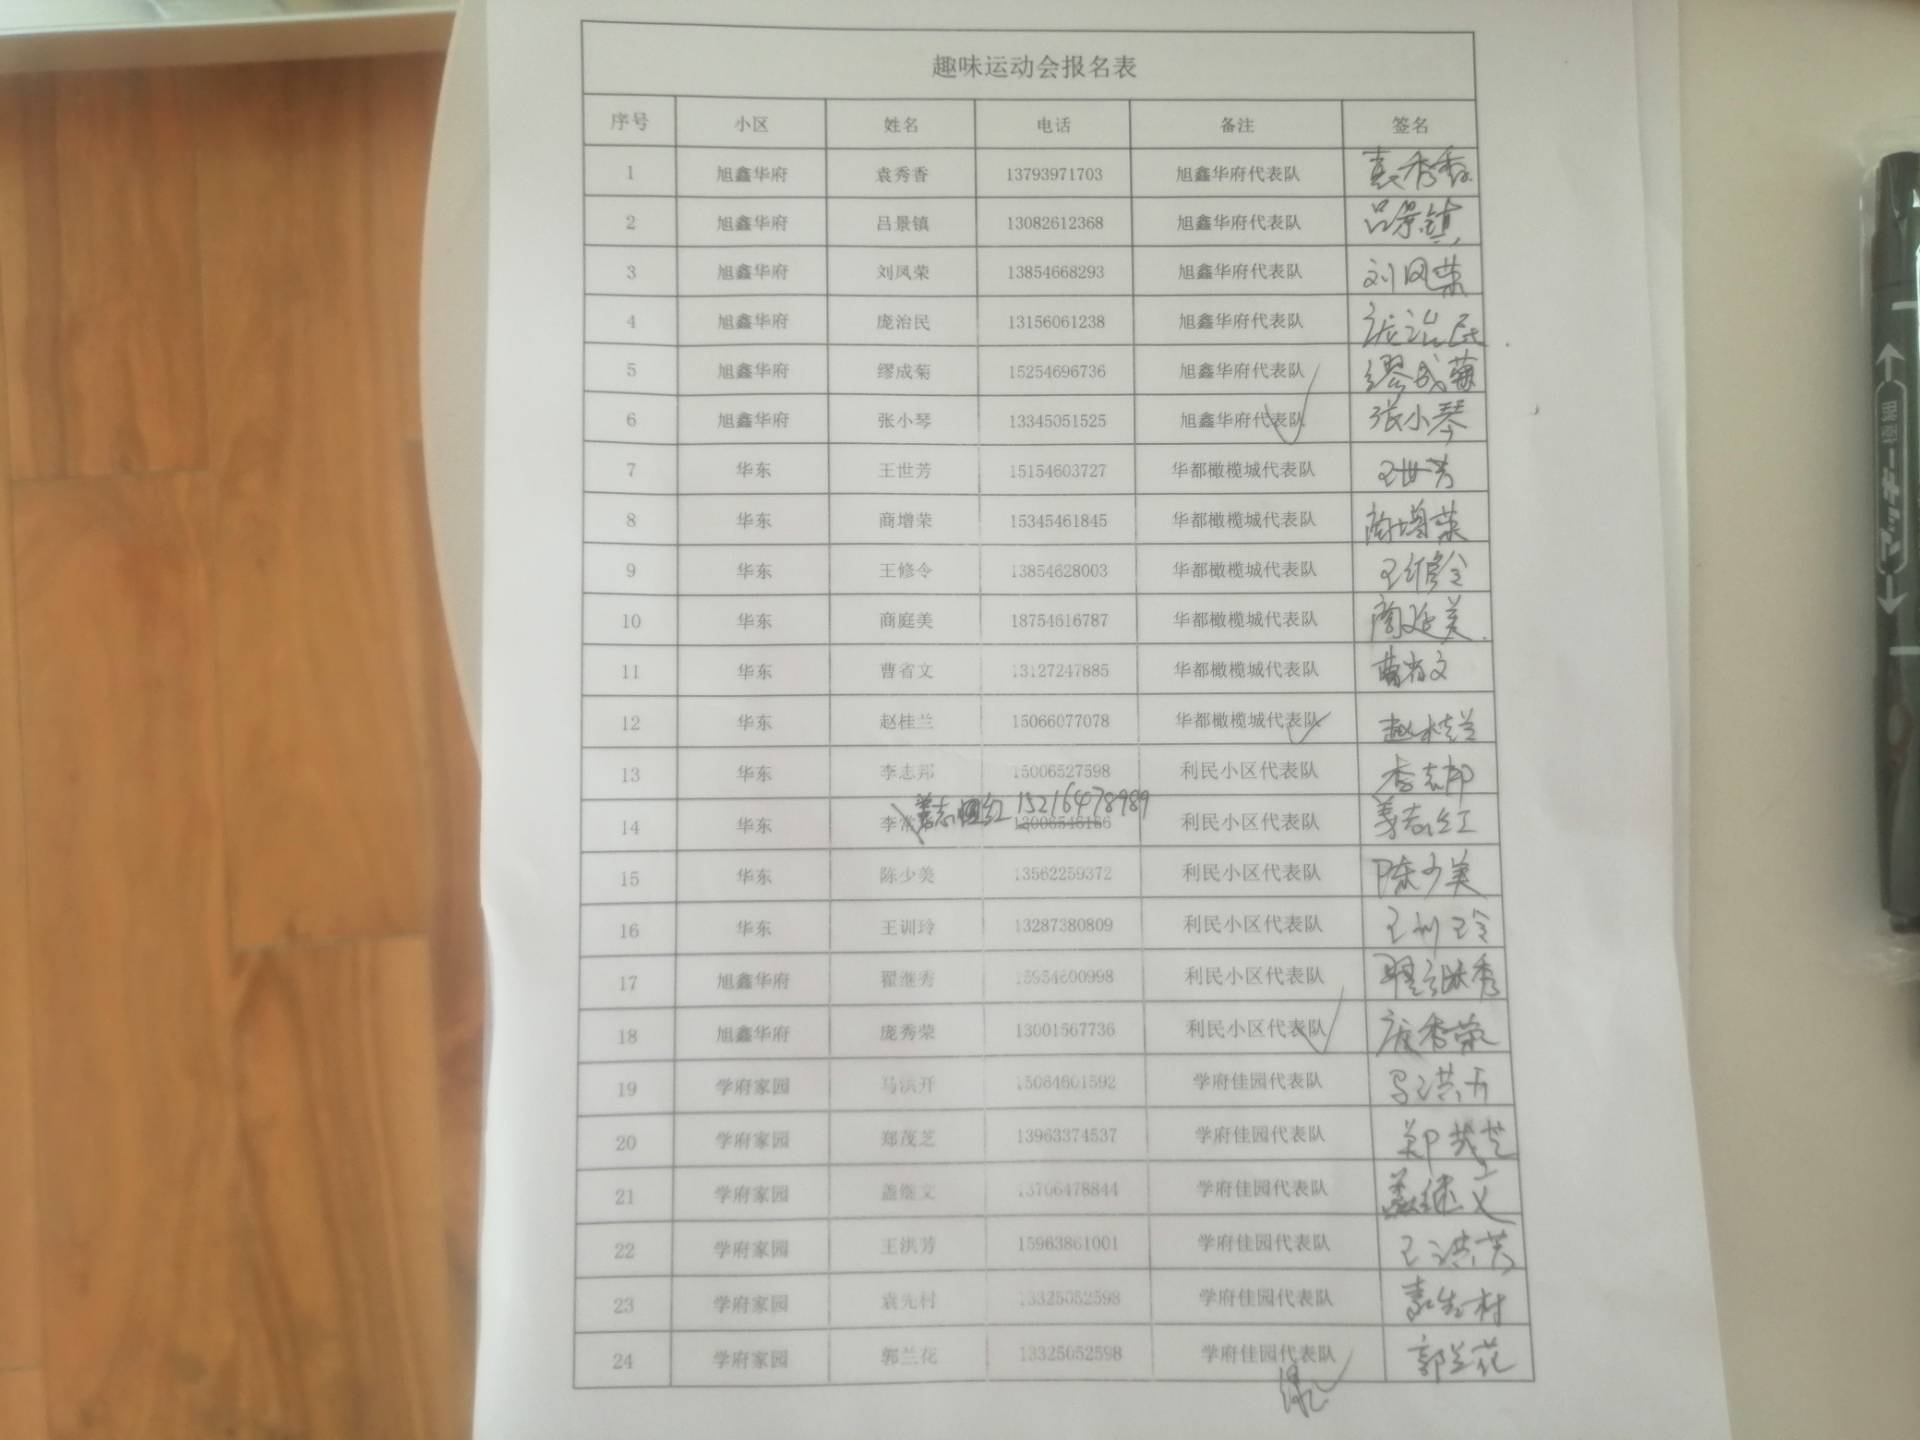 趣味运动会报名表
序号 小区 姓名 电话 备注 签名
1 旭鑫华府 袁秀香 13793971703 旭鑫华府代表队 袁秀香
2 旭鑫华府 吕景镇 13082612368 旭鑫华府代表队 吕景镇
3 旭鑫华府 刘凤荣 13854668293 旭鑫华府代表队 刘凤荣
4 旭鑫华府 庞治民 13156061238 旭鑫华府代表队 庞治民
5 旭鑫华府 缪成菊 15254696736 旭鑫华府代表队 缪成菊
6 旭鑫华府 张小琴 13345051525 旭鑫华府代表队 张小琴
7 华东 王世芳 15154603727 华都橄榄城代表队 王世芳
8 华东 商增荣 15345461845 华都橄榄城代表队 商增荣
9 华东 王修令 13854628003 华都橄榄城代表队 王修令
10 华东 商庭美 18754616787 华都橄榄城代表队 商庭美
11 华东 曹省文 13127247885 华都橄榄城代表队 曹省文
12 华东 赵桂兰 15066077078 华都橄榄城代表队 赵桂兰
13 华东 李志邦 15006527598 利民小区代表队 李志邦
14 华东 李常 15216478989 利民小区代表队 姜志红
15 华东 陈少美 13562259372 利民小区代表队 陈少美
16 华东 王训玲 13287380809 利民小区代表队 王训玲
17 旭鑫华府 翟继秀 15954600998 利民小区代表队 翟继秀
18 旭鑫华府 庞秀荣 13001567736 利民小区代表队 庞秀荣
19 学府家园 马洪开 15064601592 学府佳园代表队 马洪开
20 学府家园 郑茂芝 13963374537 学府佳园代表队 郑茂芝
21 学府家园 盖继文 13706478844 学府佳园代表队 盖继文
22 学府家园 王洪芳 15963861001 学府佳园代表队 王洪芳
23 学府家园 袁先村 13325052598 学府佳园代表队 袁先村
24 学府家园 郭兰花 13325052598 学府佳园代表队 郭兰花
マッキー 極細